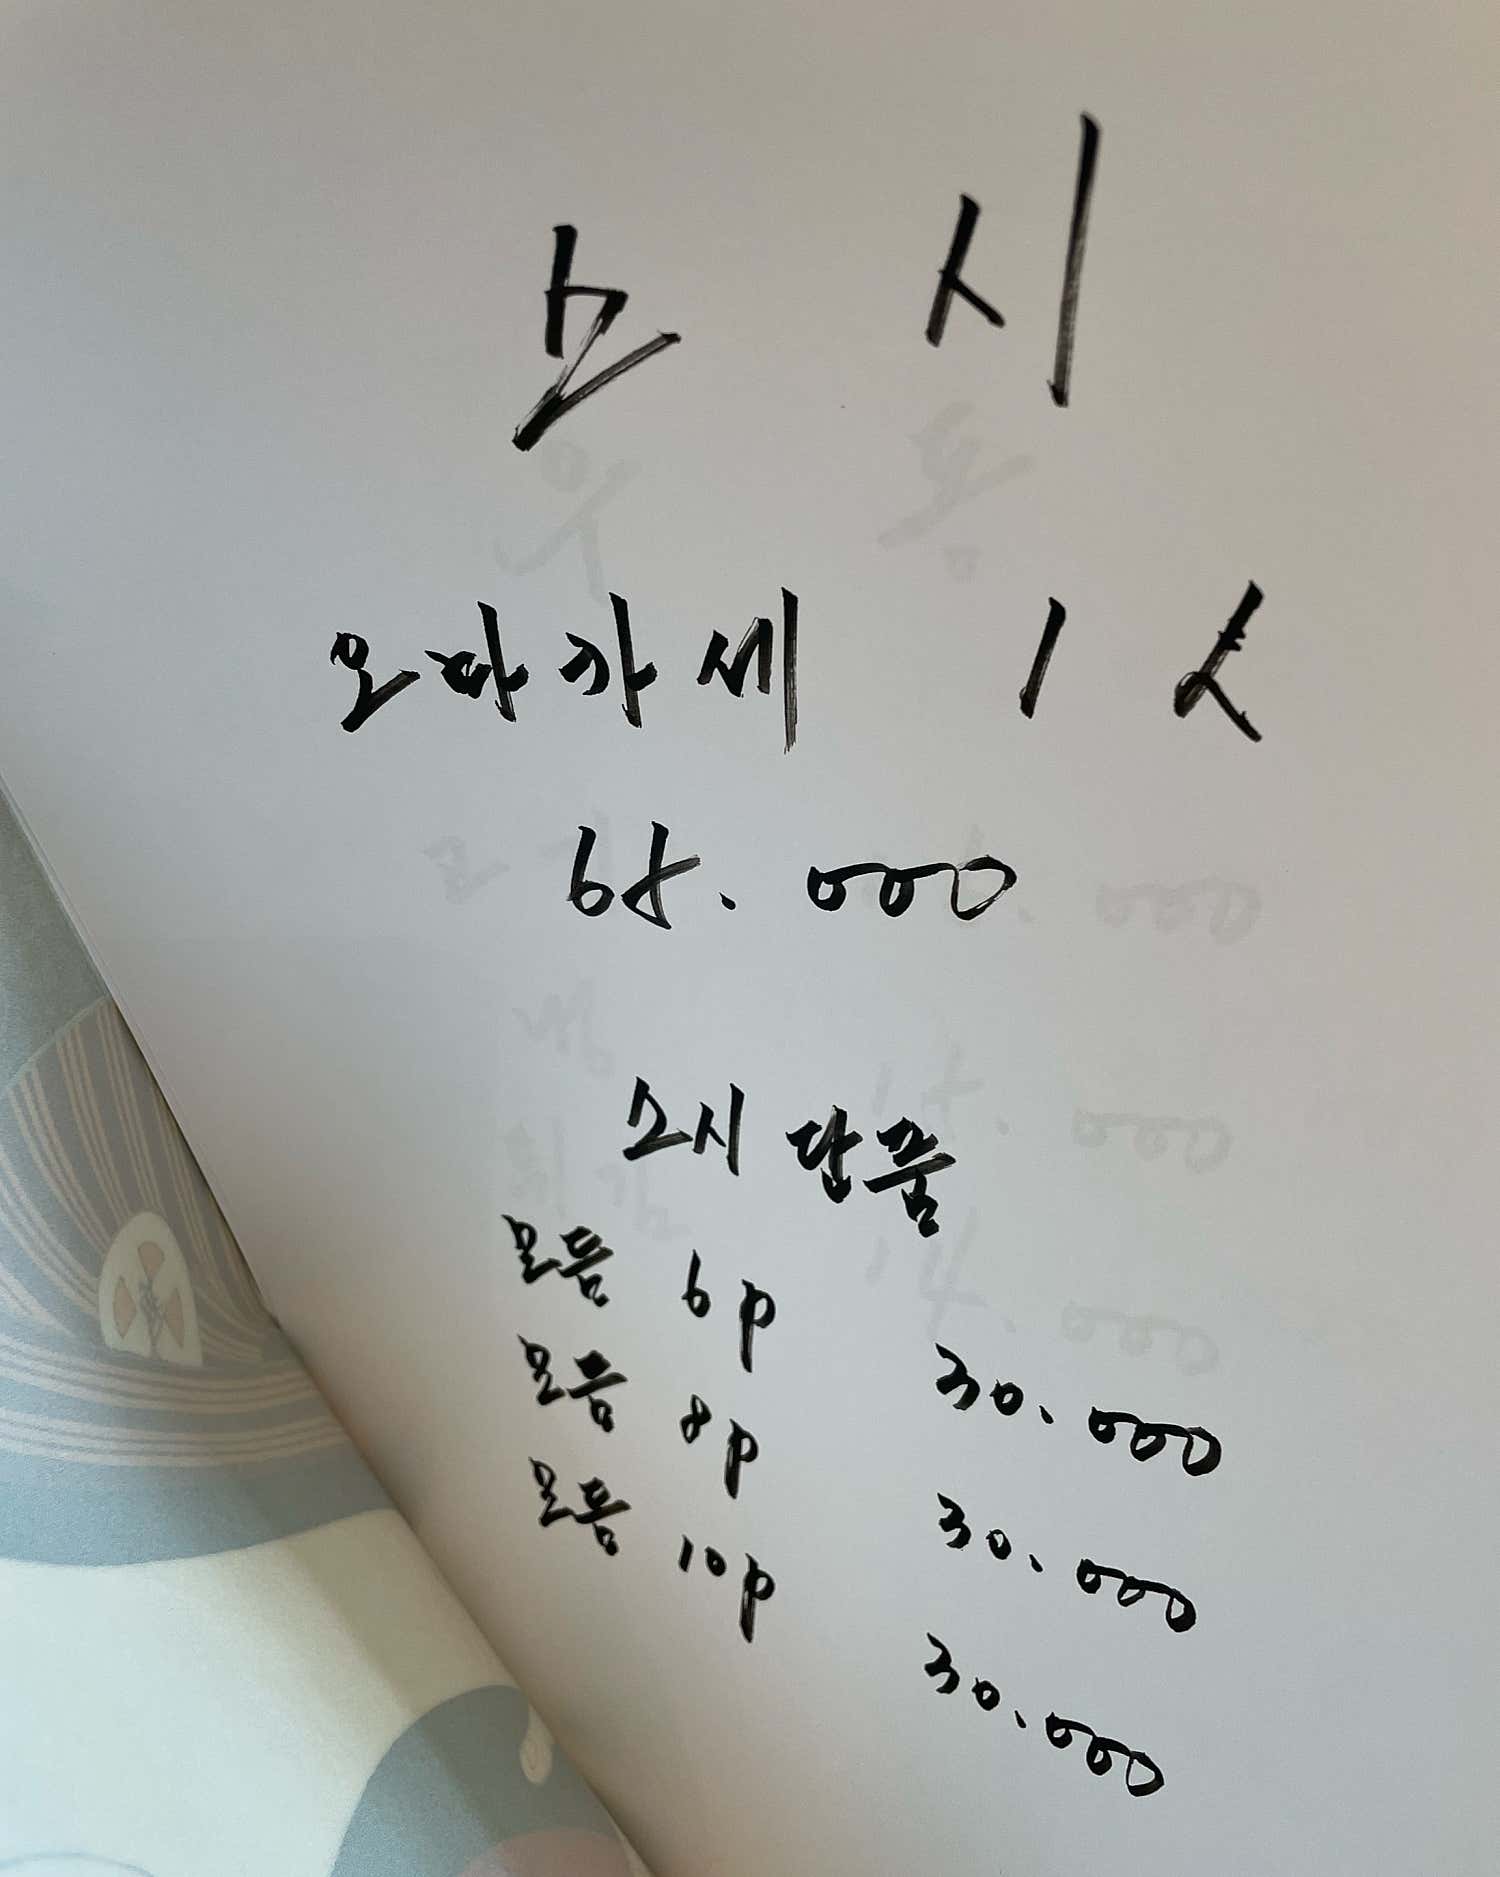 스시
오마까세 1人
65.000
스시 단품
모듬 6p 30.000
모듬 8p 30.000
모듬 10p 30.000